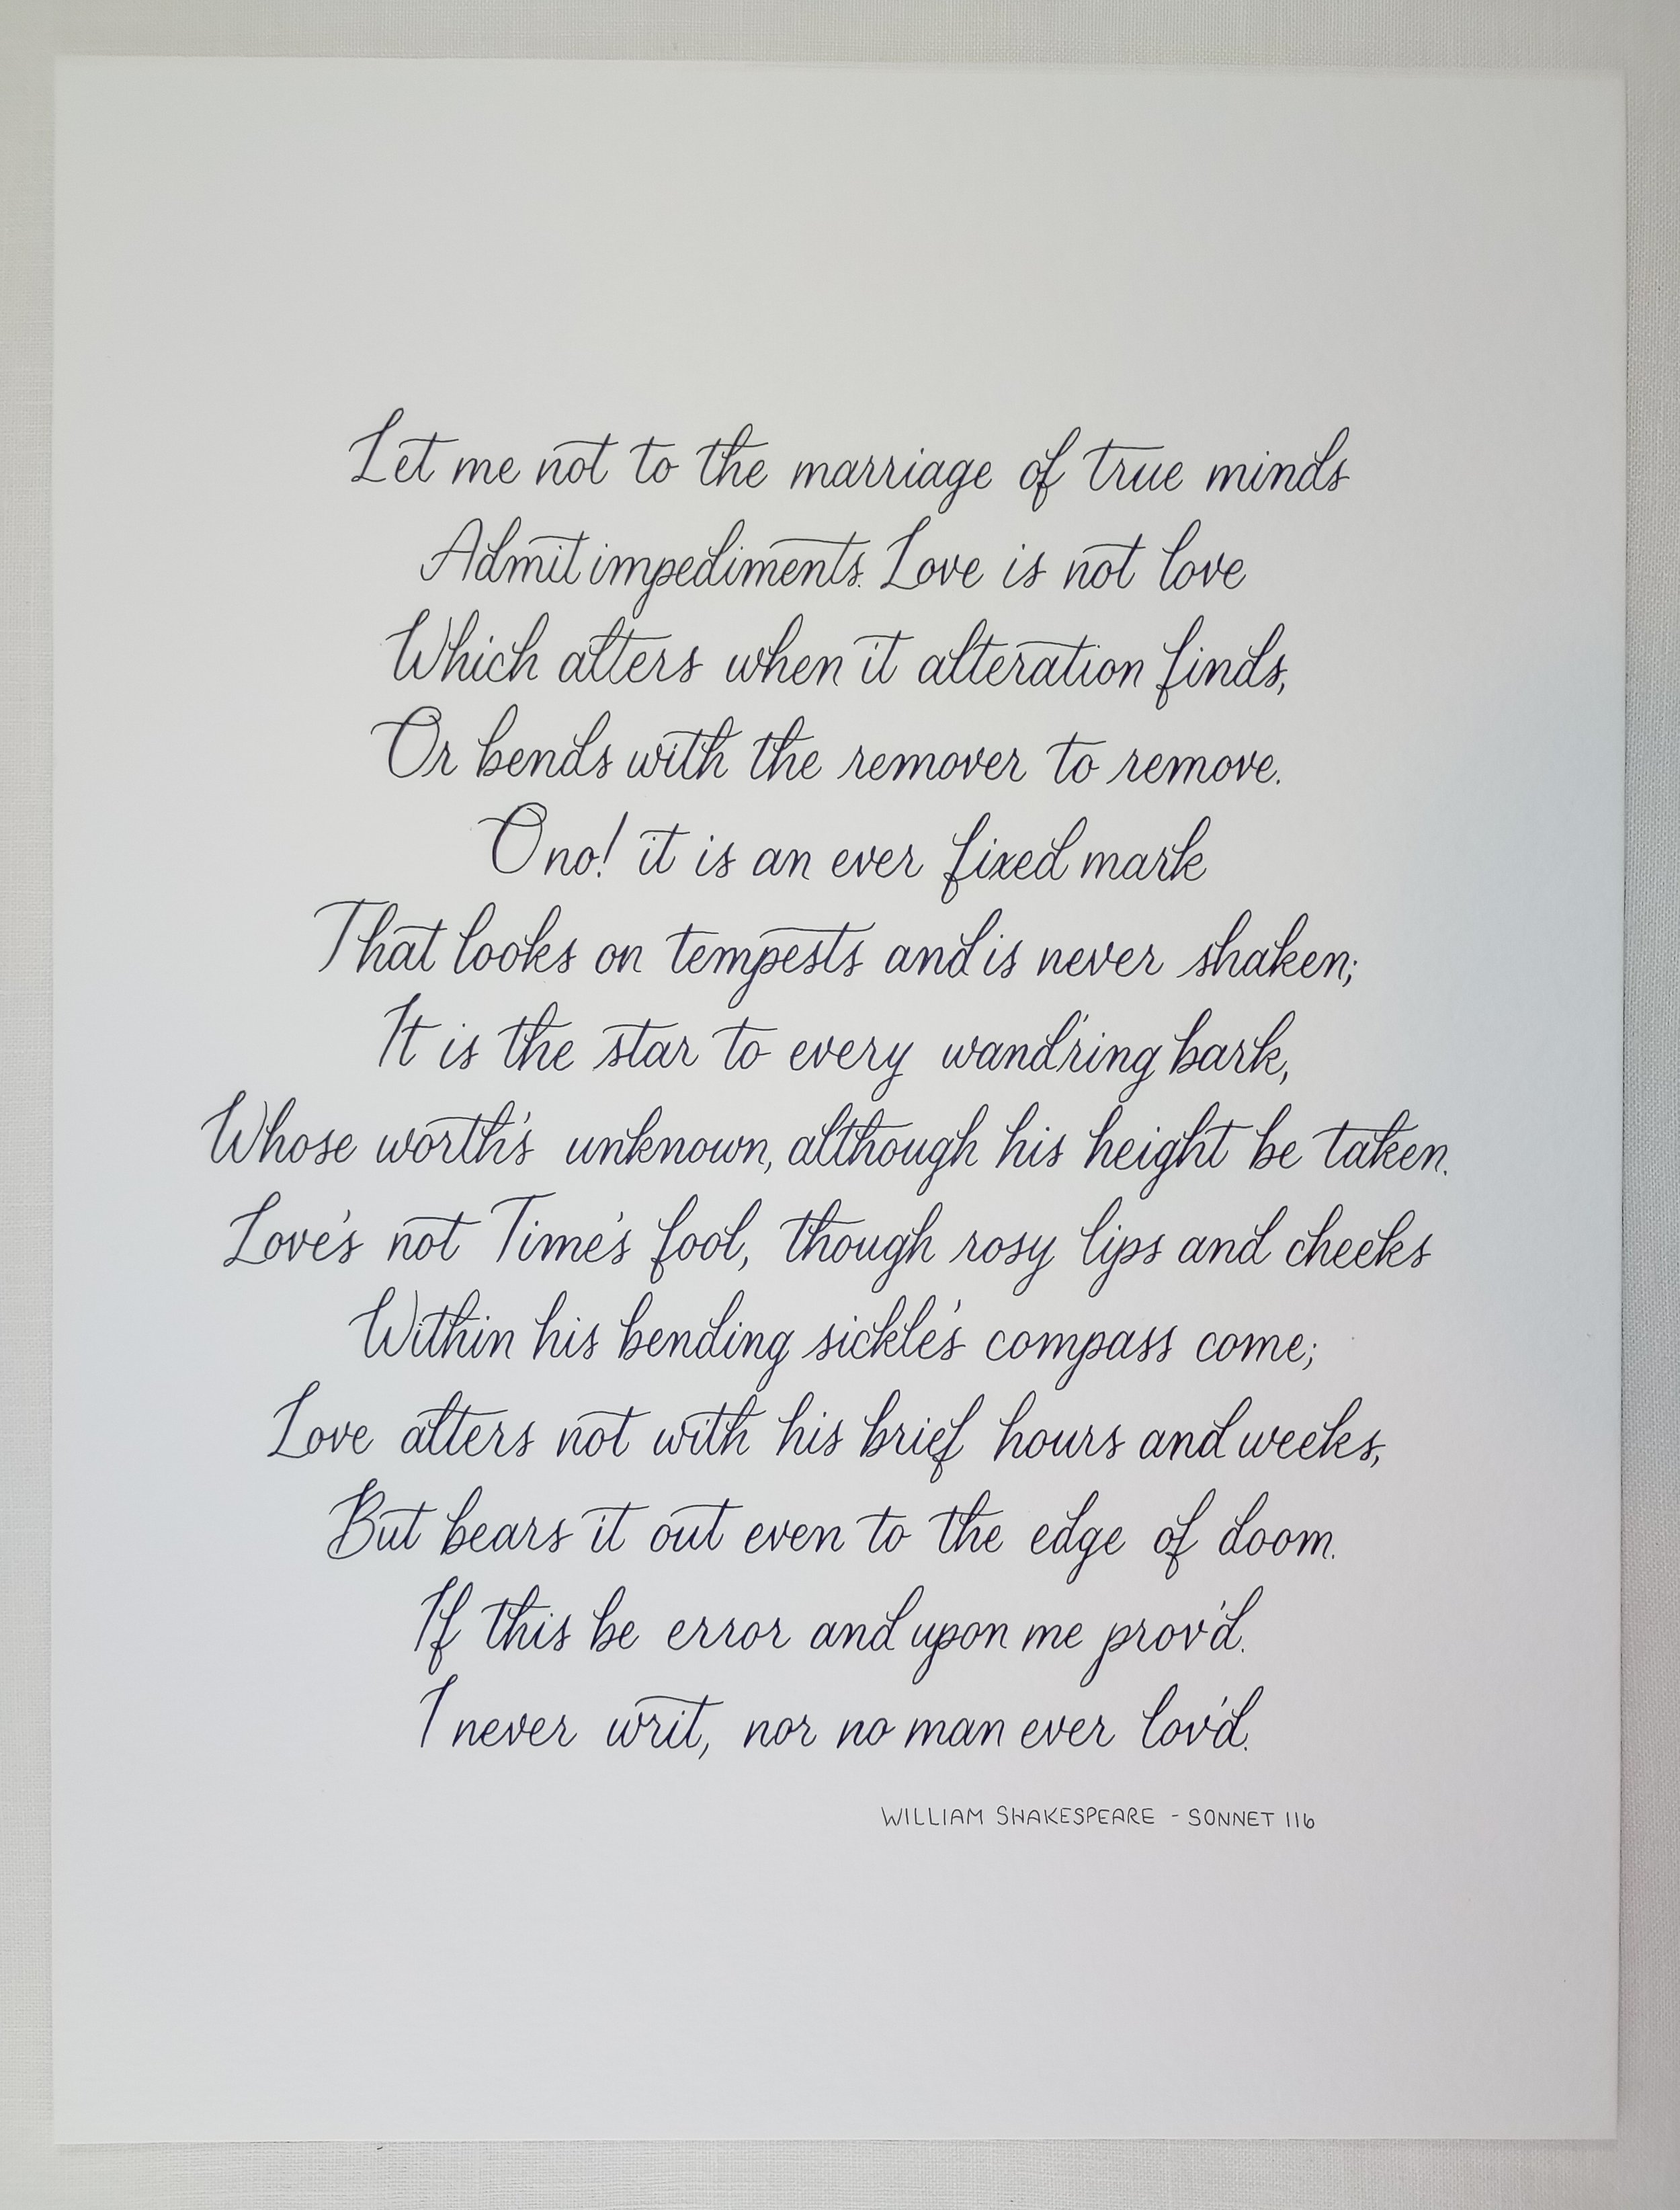 Let me not to the marriage of true minds
Admit impediments. Love is not love
Which alters when it alteration finds,
Or bends with the remover to remove.
O no! it is an ever fixed mark
That looks on tempests and is never shaken;
It is the star to every wand'ring bark,
Whose worth's unknown, although his height be taken.
Love's not Time's fool, though rosy lips and cheeks
Within his bending sickle's compass come;
Love alters not with his brief hours and weeks,
But bears it out even to the edge of doom.
If this be error and upon me prov'd.
I never writ, nor no man ever lov'd.
WILLIAM SHAKESPEARE - SONNET 116